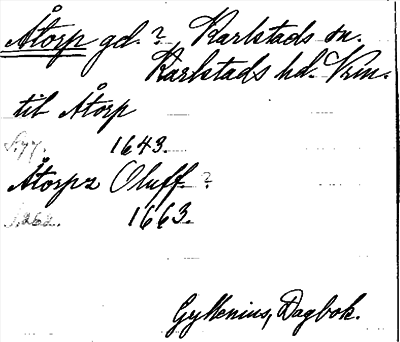 Åtorp gd.? Karlstads sn.
Karlstads hd. Vrm.
til Åtorp
s. 77. 1643.
Åtorpz Oluff ?
1663.
Gyllenius, Dagbok.